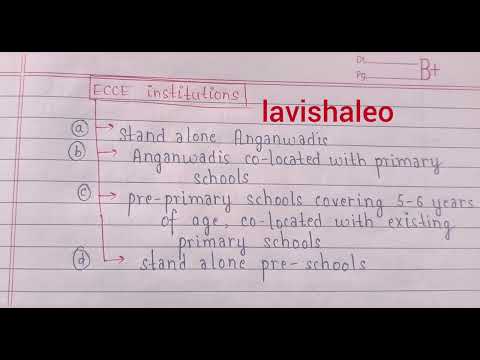 Dt.
Pg.
B+
ECCE institutions
lavishaleo
(a) stand alone Anganwadis
(b) Anganwadis co-located with primary
schools
(c) pre-primary schools covering 5-6 years
of age, co-located with existing
primary schools
(d) stand alone pre-schools